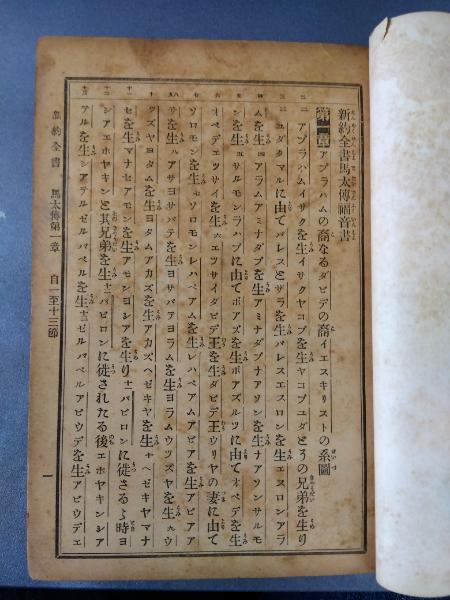 新約全書馬太傳福音書
第一章 アブラハムの裔なるダビデの裔イエスキリストの系圖
アブラハムイサクを生イサクヤコブを生ヤコブユダとその兄弟を生り
ユダタマルに由てパレスとザラを生パレスエスロンを生エスロンアラ
ムを生四アラムアミナダブを生アミナダブナアソンを生ナアソンサルモ
ンを生五サルモンラハブに由てボアズを生ボアズルツに由てオベデを生
オベデエッサイを生六エッサイダビデ王を生ダビデ王ウリヤの妻に由て
ソロモンを生七ソロモンレハベアムを生レハベアムアビアを生アビアア
サを生八アサヨサパテを生ヨサパテヨラムを生ヨラムウツズヤを生九ウ
ツズヤヨタムを生ヨタムアカズを生アカズヘゼキヤを生十ヘゼキヤマナ
セを生マナセアモンを生アモンヨシアを生り十一バビロンに徙さるゝ時ヨ
シアエホヤキンと其兄弟を生十二バビロンに徙されたる後エホヤキンシア
アルを生シアテルゼルバベルを生十三ゼルバベルアビウデを生アビウデエ
新約全書 馬太傳第一章 自一至十三節
一